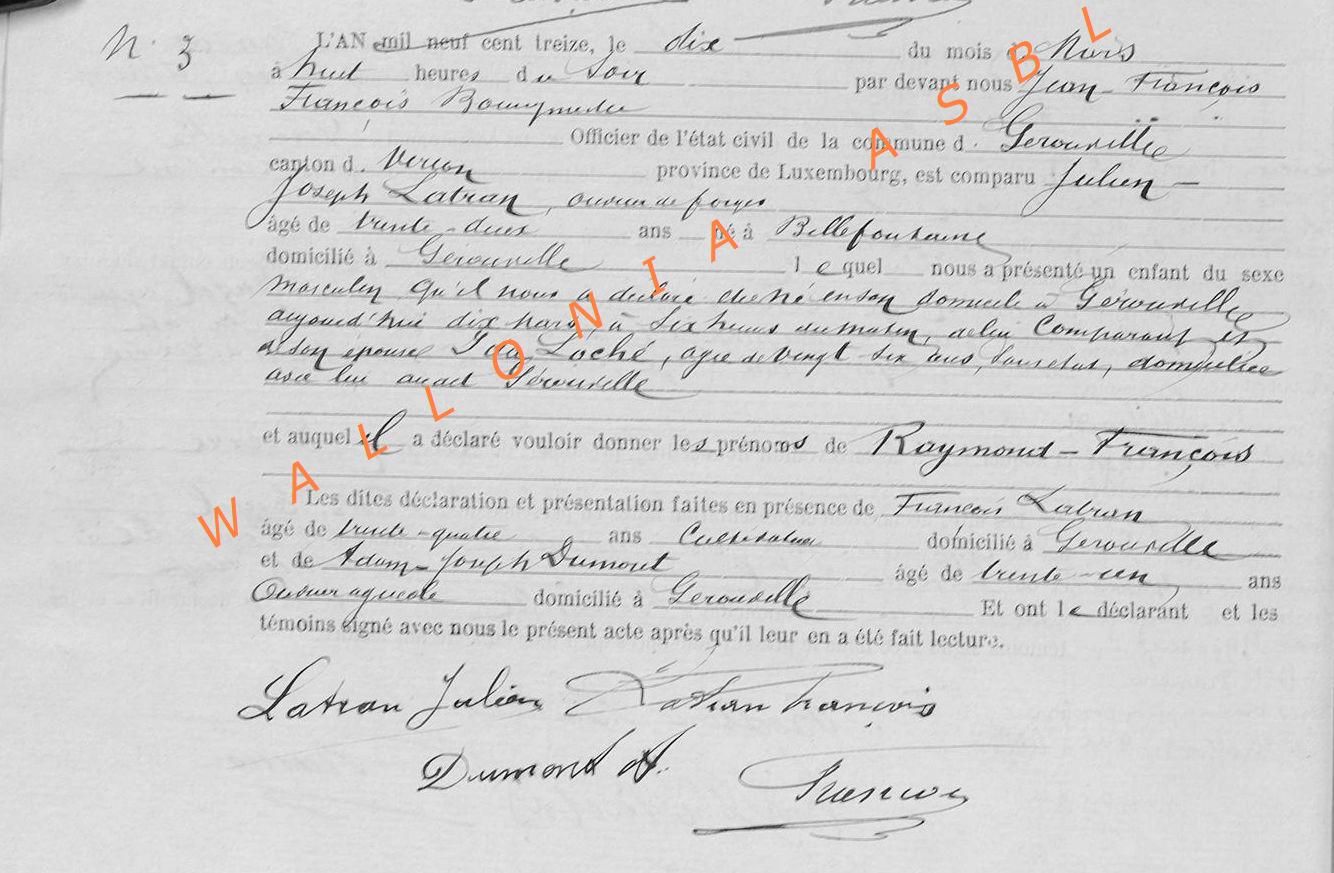 N° 3
L'AN mil neuf cent treize, le dix du mois de Mars
à huit heures du Soir par devant nous Jean-François
François
Officier de l'état civil de la commune d. Gérouville
canton d. Virton province de Luxembourg, est comparu Julien-
Joseph Latran, ouvrier de forges
âgé de trente-deux ans né à Bellefontaine
domicilié à Gérouville lequel nous a présenté un enfant du sexe
masculin qu'il nous a déclaré être né en son domicile à Gérouville
aujourd'hui dix mars, à six heures du matin, de lui comparant et
de son épouse Ida Loché, âgée de vingt six ans, domiciliée
avec lui audit Gérouville
et auquel il a déclaré vouloir donner les prénoms de Raymond-François
Les dites déclaration et présentation faites en présence de François Latran
âgé de trente-quatre ans Cultivateur domicilié à Gérouville
et de Adam-Joseph Dumont âgé de trente-un ans
Ouvrier agricole domicilié à Gérouville Et ont le déclarant et les
témoins signé avec nous le présent acte après qu'il leur en a été fait lecture.
Latran Julien Latran François
Dumont A. François
WALLONIA ASBL